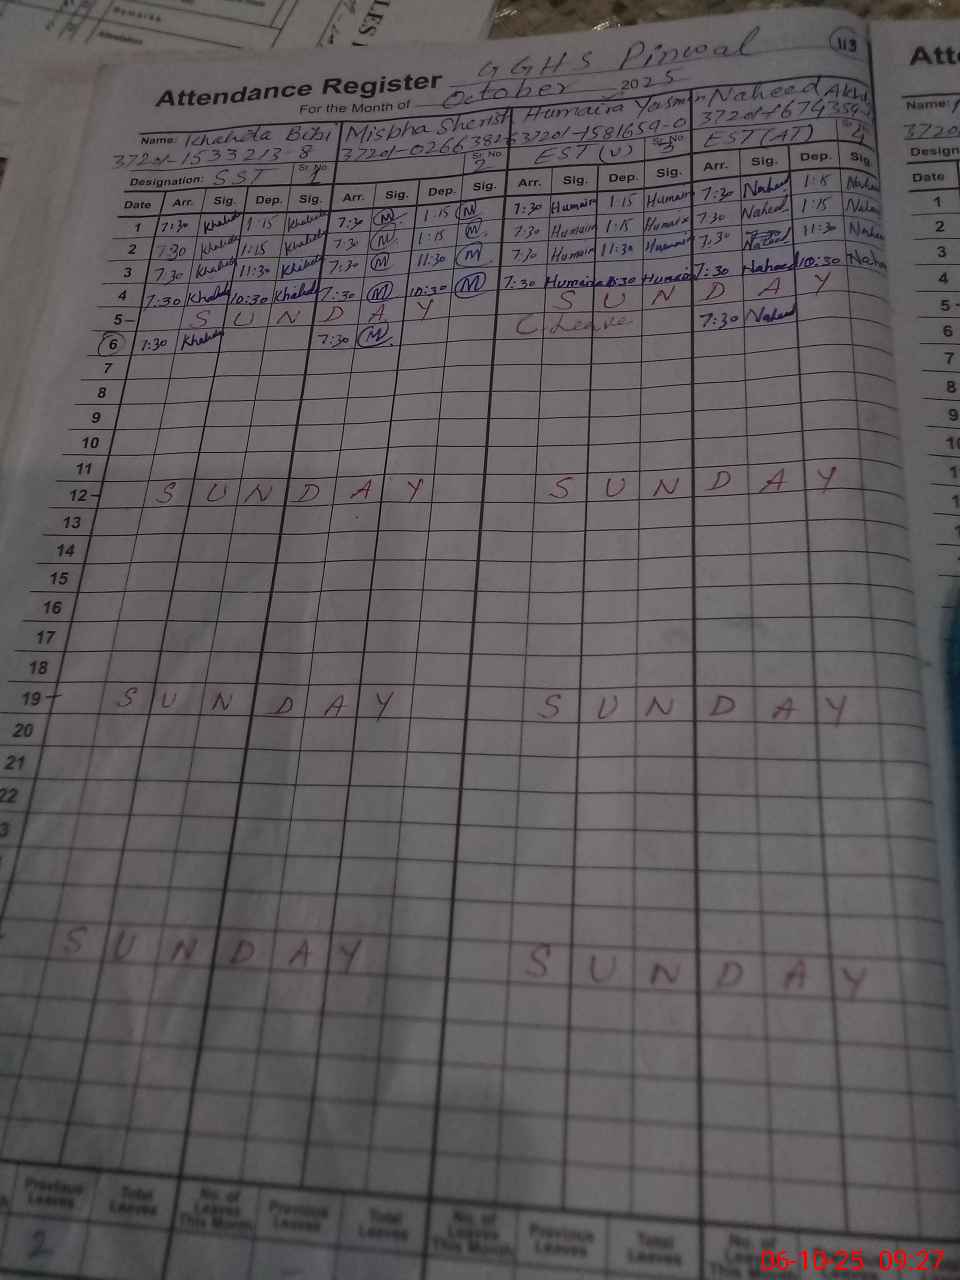 Remarks
Attendance Register GGHS Pinwal 113
For the Month of October 2025
Name: Khaleda Bibi Misbha Sherist Humaira Yasmin Naheed Akhtar
37201-1533213-8 37201-0266382-6 37201-1581659-0 37201-1674359-
Designation: SST Sr. No 1 Sr. No 2 EST (U) Sr. No 3 EST (AT) Sr. 4
Date Arr. Sig. Dep. Sig. Arr. Sig. Dep. Sig. Arr. Sig. Dep. Sig. Arr. Sig. Dep. Sig.
1 7:30 Khaleda 1:15 Khaleda 7:30 M 1:15 M 7:30 Humaira 1:15 Humaira 7:30 Naheed 1:15 Naheed
2 7:30 Khaleda 1:15 Khaleda 7:30 M 1:15 M 7:30 Humaira 1:15 Humaira 7:30 Naheed 1:15 Naheed
3 7:30 Khaleda 11:30 Khaleda 7:30 M 11:30 M 7:30 Humaira 11:30 Humaira 7:30 Naheed 11:30 Naheed
4 7:30 Khaleda 10:30 Khaleda 7:30 M 10:30 M 7:30 Humaira 10:30 Humaira 7:30 Naheed 10:30 Naheed
5 S U N D A Y S U N D A Y
6 7:30 Khaleda 7:30 M C Leave 7:30 Naheed
7
8
9
10
11
12 S U N D A Y S U N D A Y
13
14
15
16
17
18
19 S U N D A Y S U N D A Y
20
21
22
3
S U N D A Y S U N D A Y
Previous Leaves Total Leaves No. of Leaves This Month Previous Leaves Total Leaves No. of Leaves This Month Previous Leaves Total Leaves No. of
2
Atte
Name:
3720
Design
Date
1
2
3
4
5
6
7
8
9
06-10-25 09:27